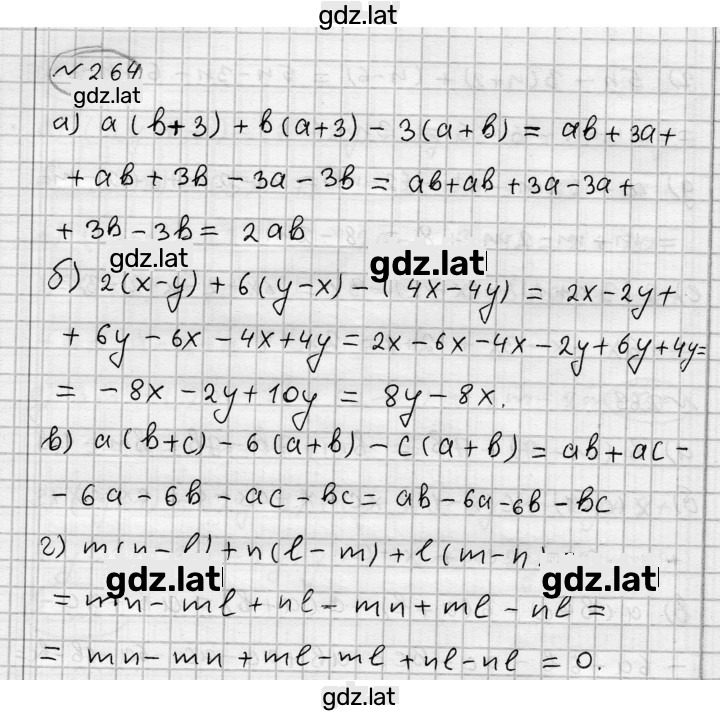 gdz.lat
№ 264
gdz.lat
а) a(b+3)+b(a+3)-3(a+b) = ab+3a+
+ab+3b-3a-3b = ab+ab+3a-3a+
+3b-3b= 2ab
gdz.lat gdz.lat
б) 2(x-y)+6(y-x)-(4x-4y) = 2x-2y+
+6y-6x-4x+4y=2x-6x-4x-2y+6y+4y=
= -8x-2y+10y = 8y-8x.
в) a(b+c)-6(a+b)-c(a+b)=ab+ac-
-6a-6b-ac-bc= ab-6a-6b-bc
г) m(n-l)+n(l-m)+l(m-n
gdz.lat gdz.lat
=mn-ml+nl-mn+ml-nl=
= mn-mn+ml-ml+nl-nl = 0.
gdz.lat